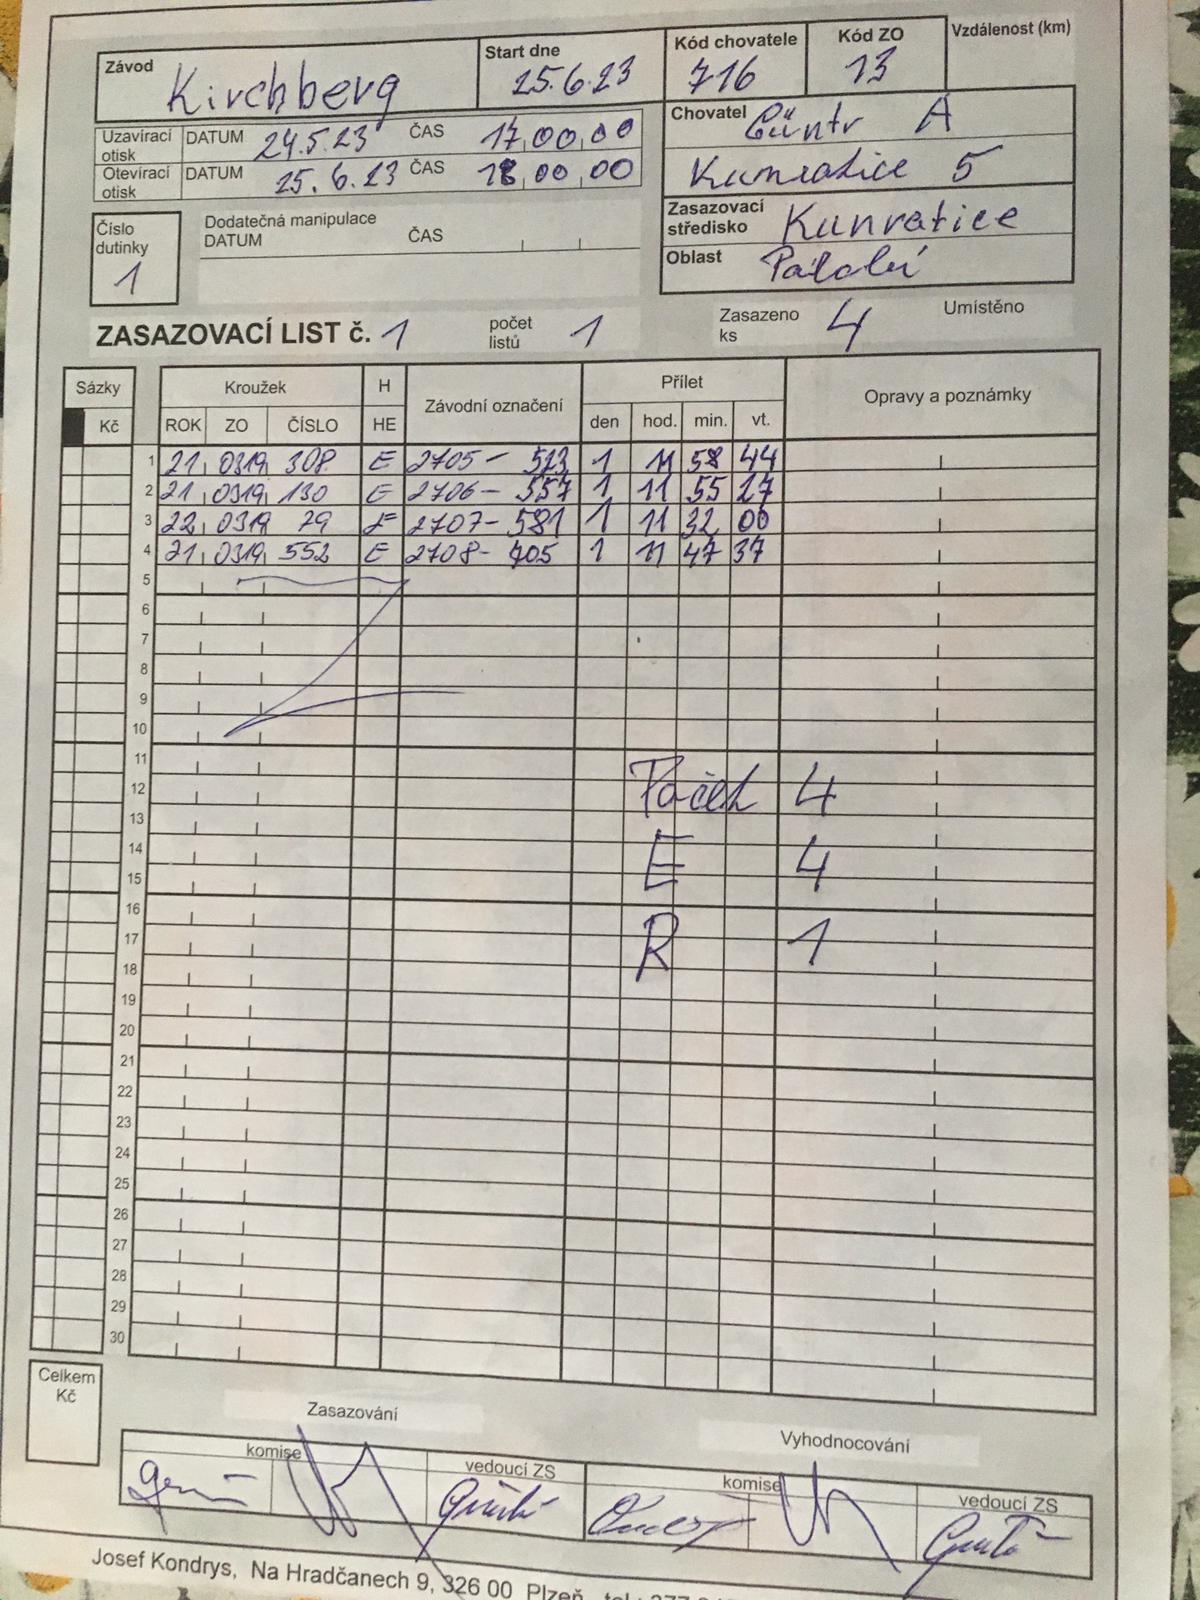 Závod Kirchberg Start dne 25.6.23 Kód chovatele 716 Kód ZO 13 Vzdálenost (km)
Uzavírací otisk DATUM 24.5.23 ČAS 17,00,00
Otevírací otisk DATUM 25.6.23 ČAS 18,00,00
Chovatel A
Kunratice 5
Zasazovací středisko Kunratice
Oblast
Číslo dutinky 1
Dodatečná manipulace
DATUM ČAS
ZASAZOVACÍ LIST č. 1 počet listů 1 Zasazeno ks 4 Umístěno
Sázky Kroužek H Závodní označení Přílet Opravy a poznámky
Kč ROK ZO ČÍSLO HE den hod. min. vt.
1 21 0319 308 E 2705 - 523 1 11 58 44
2 21 0319 130 E 2706 - 557 1 11 55 27
3 22 0319 79 E 2707 - 581 1 11 32 00
4 21 0319 552 E 2708 - 705 1 11 47 37
5
6
7
8
9
10
11
12 Poček 4
13
14 E 4
15
16
17 R 1
18
19
20
21
22
23
24
25
26
27
28
29
30
Celkem Kč
Zasazování Vyhodnocování
komise vedoucí ZS komise vedoucí ZS
Josef Kondrys, Na Hradčanech 9, 326 00 Plzeň